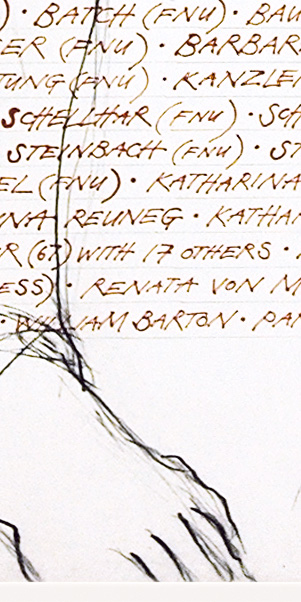 ) · BATCH (FNU) · BAU
ER (FNU) · BARBAR
TUNG (FNU) · KANZLE
SCHELLHAR (FNU) · SCH
STEINBACH (FNU) · ST
EL (FNU) · KATHARINA
NA REUNEG · KATHA
R (67) WITH 17 OTHERS ·
ESS) · RENATA VON M
· WILLIAM BARTON · PA